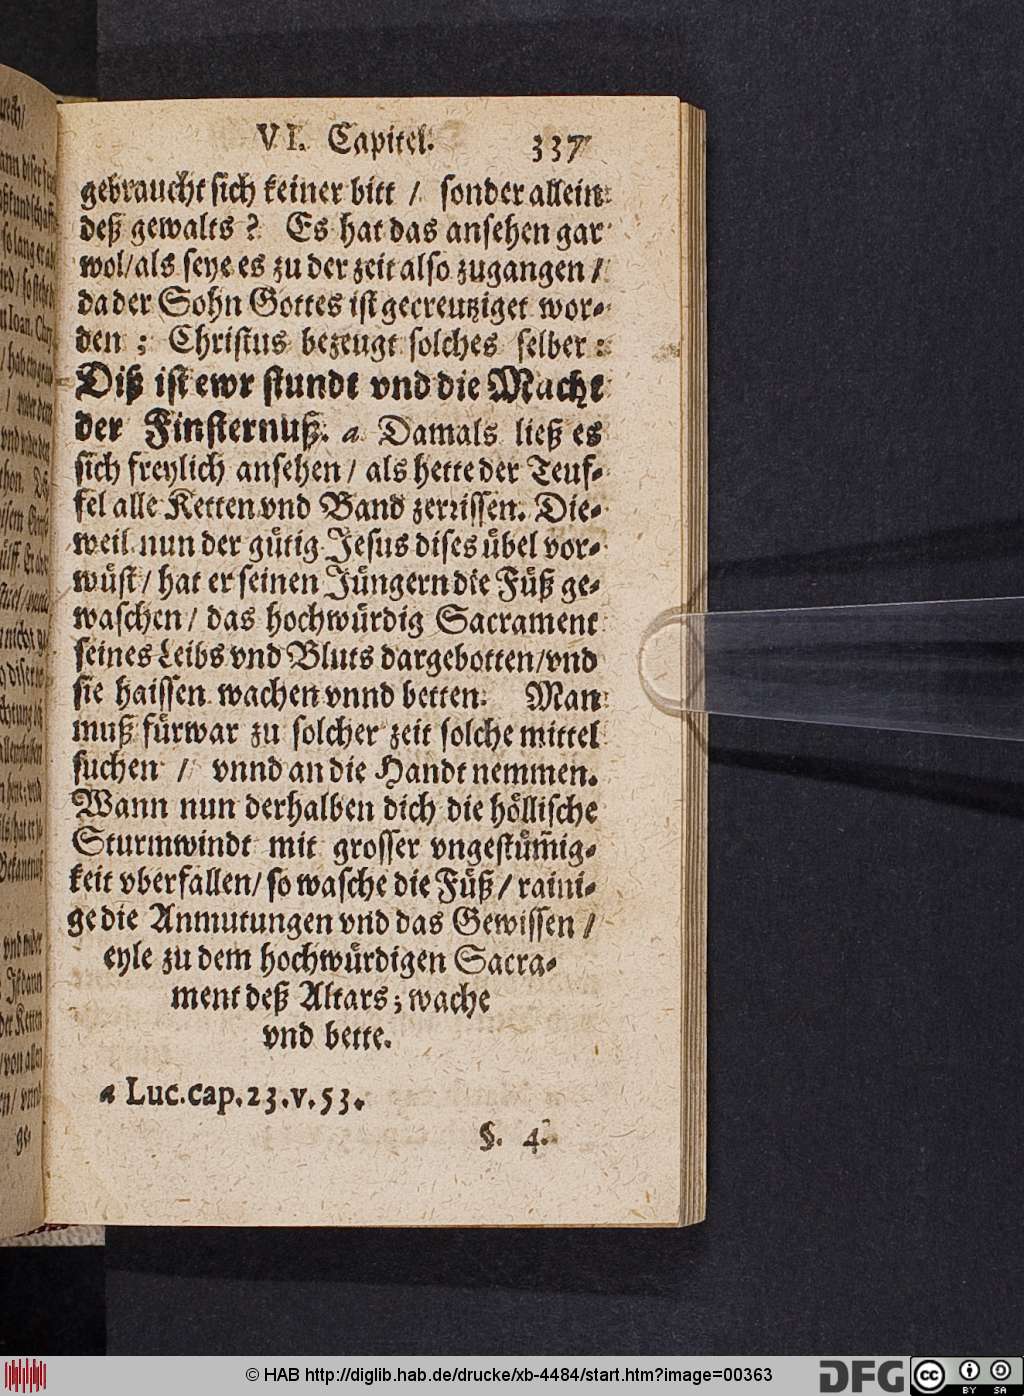 VI. Capitel. 337
gebraucht sich keiner bitt / sonder allein
deß gewalts? Es hat das ansehen gar
wol/als seye es zu der zeit also zugangen /
da der Sohn Gottes ist gecreutziget wor-
den ; Christus bezeugt solches selber :
Diß ist ewr stundt vnd die Macht
der Finsternuß. a Damals ließ es
sich freylich ansehen / als hette der Teuf-
fel alle Ketten vnd Band zerrissen. Die-
weil nun der gütig Jesus dises übel vor-
wüst / hat er seinen Jüngern die Füß ge-
waschen / das hochwürdig Sacrament
seines Leibs vnd Bluts dargebotten/vnd
sie haissen wachen vnnd betten. Man
muß fürwar zu solcher zeit solche mittel
suchen / vnnd an die Handt nemmen.
Wann nun derhalben dich die höllische
Sturmwindt mit grosser vngestüm̃ig-
keit vberfallen/ so wasche die Füß / raini-
ge die Anmutungen vnd das Gewissen /
eyle zu dem hochwürdigen Sacra-
ment deß Altars; wache
vnd bette.
a Luc.cap.23.v.53.
§. 4.
© HAB http://diglib.hab.de/drucke/xb-4484/start.htm?image=00363
DFG
cc BY SA